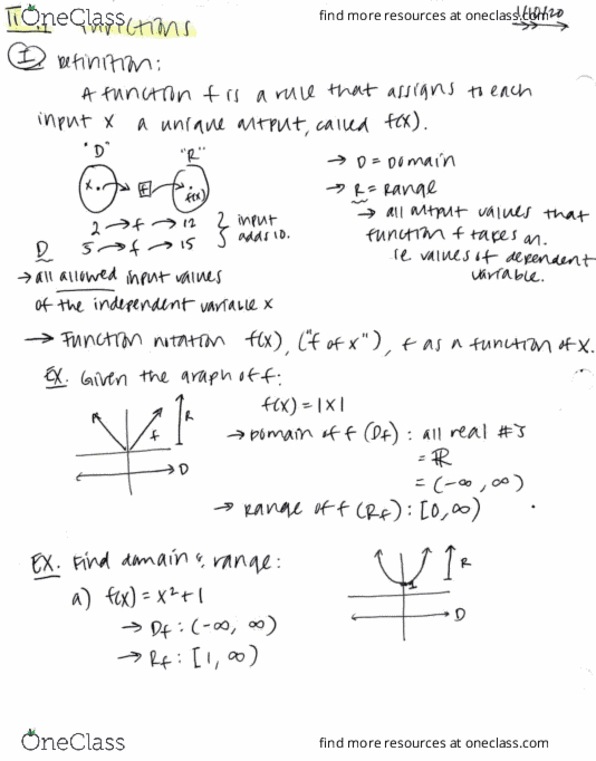 OneClass
find more resources at oneclass.com
Functions
I Definition:
A function f is a rule that assigns to each
input x a unique output, called f(x).
"D" "R"
x. f f(x)
→ D = Domain
→ R = Range
→ all output values that
function f takes on.
ie values of dependent
variable.
2 → f → 12
5 → f → 15
input
adds 10.
D
→ all allowed input values
of the independent variable x
→ Function notation f(x), ("f of x"), f as a function of x.
EX. Given the graph of f:
f R
D
f(x) = |x|
→ Domain of f (Df) : all real #s
= ℝ
= (-∞, ∞)
→ Range of f (Rf) : [0, ∞)
EX. Find domain & range:
a) f(x) = x²+1
→ Df : (-∞, ∞)
→ Rf : [1, ∞)
1 R
D
OneClass
find more resources at oneclass.com